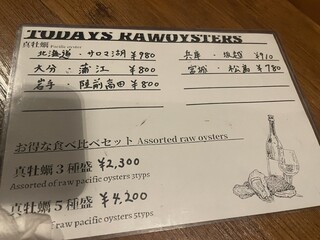 TODAYS RAWOYSTERS
真牡蠣 Pacific oysters
北海道・サロマ湖 ¥980
兵庫・坂越 ¥910
大分・蒲江 ¥800
宮城・松島 ¥780
岩手・陸前高田 ¥800
お得な食べ比べセット Assorted raw oysters
真牡蠣3種盛 ¥2,300
Assorted of raw pacific oysters 3typs
真牡蠣5種盛 ¥4,200
of raw pacific oysters 5typs